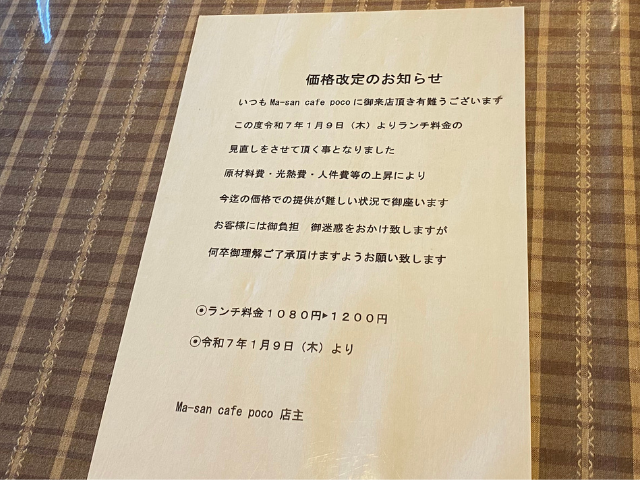 価格改定のお知らせ
いつもMa-san cafe pocoに御来店頂き有難うございます
この度令和７年１月９日（木）よりランチ料金の
見直しをさせて頂く事となりました
原材料費・光熱費・人件費等の上昇により
今迄の価格での提供が難しい状況で御座います
お客様には御負担　御迷惑をおかけ致しますが
何卒御理解ご了承頂けますようお願い致します
⦿ランチ料金１０８０円▸１２００円
⦿令和７年１月９日（木）より
Ma-san cafe poco 店主